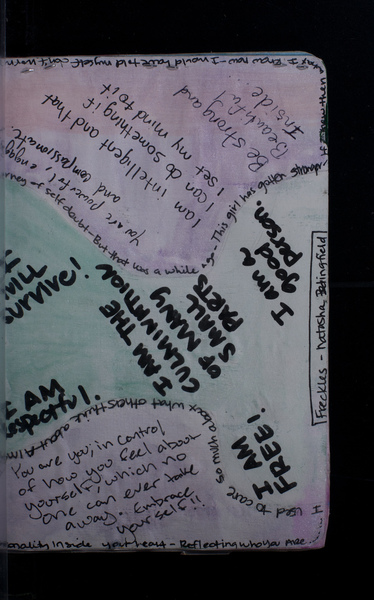 I know now - I would have told myself can't
Be strong and
Beautiful
Inside...
I am intelligent and that
I can do something if
I set my mind to it
You are powerful,
and compassionate.
self doubt - But that was a while ago. This girl has gotten stronger
I am a
good
person.
I AM THE
CULMINATION
OF MANY
SMALL
PARTS
WILL
SURVIVE!
I AM
respectful.
I AM
FREE!
Freckles - Natasha Bedingfield
I used to care so much about what others think about
You are you; in control
of how you feel about
yourself, which no
one can ever take
away. Embrace
yourself!!
inside your heart - Reflecting who you are